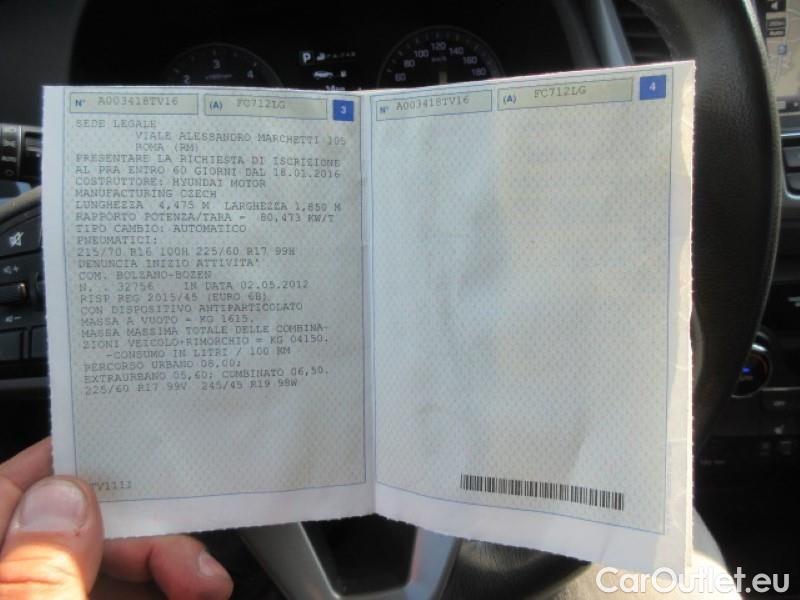 N° A003418TV16 (A) FC712LG 3
SEDE LEGALE
VIALE ALESSANDRO MARCHETTI 105
ROMA (RM)
PRESENTARE LA RICHIESTA DI ISCRIZIONE
AL PRA ENTRO 60 GIORNI DAL 18.01.2016
COSTRUTTORE: HYUNDAI MOTOR
MANUFACTURING CZECH
LUNGHEZZA 4,475 M LARGHEZZA 1,850 M
RAPPORTO POTENZA/TARA = 80,473 KW/T
TIPO CAMBIO: AUTOMATICO
PNEUMATICI:
215/70 R16 100H 225/60 R17 99H
DENUNCIA INIZIO ATTIVITA'
COM. BOLZANO-BOZEN
N. . 32756 IN DATA 02.05.2012
RISP REG 2015/45 (EURO 6B)
CON DISPOSITIVO ANTIPARTICOLATO
MASSA A VUOTO = KG 1615.
MASSA MASSIMA TOTALE DELLE COMBINA-
ZIONI VEICOLO+RIMORCHIO = KG 04150.
-CONSUMO IN LITRI / 100 KM
PERCORSO URBANO 08,00;
EXTRAURBANO 05,60; COMBINATO 06,50.
225/60 R17 99V 245/45 R19 98W
TV1111
N° A003418TV16 (A) FC712LG 4
2 3 4
P
60 80 100 120 140 160 180
km/h
CarOutlet.eu